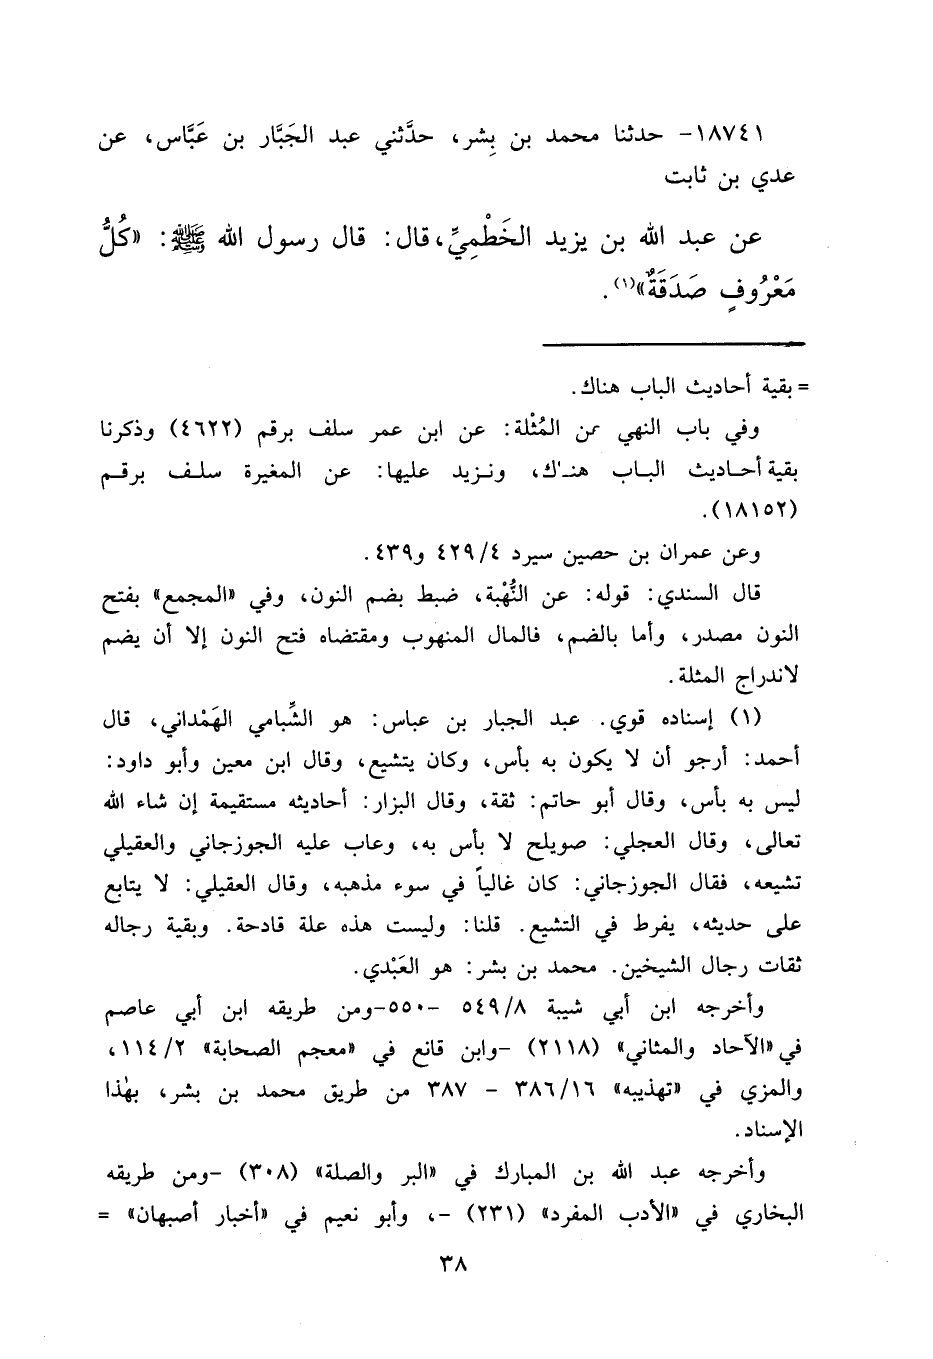 ١٨٧٤١- حدثنا محمد بن بِشر، حدَّثني عبد الجَبَّار بن عَبَّاس، عن
عدي بن ثابت
عن عبد الله بن يزيد الخَطْمِيِّ، قال: قال رسول الله ﷺ: «كُلُّ
مَعْرُوفٍ صَدَقَةٌ»(١).
= بقية أحاديث الباب هناك.
وفي باب النهي عن المُثْلة: عن ابن عمر سلف برقم (٤٦٢٢) وذكرنا
بقية أحاديث الباب هناك، ونزيد عليها: عن المغيرة سلف برقم
(١٨١٥٢).
وعن عمران بن حصين سيرد ٤٢٩/٤ و٤٣٩.
قال السندي: قوله: عن النُّهْبة، ضبط بضم النون، وفي «المجمع» بفتح
النون مصدر، وأما بالضم، فالمال المنهوب ومقتضاه فتح النون إلا أن يضم
لاندراج المثلة.
(١) إسناده قوي. عبد الجبار بن عباس: هو الشِّبامي الهَمْداني، قال
أحمد: أرجو أن لا يكون به بأس، وكان يتشيع، وقال ابن معين وأبو داود:
ليس به بأس، وقال أبو حاتم: ثقة، وقال البزار: أحاديثه مستقيمة إن شاء الله
تعالى، وقال العجلي: صويلح لا بأس به، وعاب عليه الجوزجاني والعقيلي
تشيعه، فقال الجوزجاني: كان غالياً في سوء مذهبه، وقال العقيلي: لا يتابع
على حديثه، يفرط في التشيع. قلنا: وليست هذه علة قادحة. وبقية رجاله
ثقات رجال الشيخين. محمد بن بشر: هو العَبْدي.
وأخرجه ابن أبي شيبة ٥٤٩/٨ -٥٥٠-ومن طريقه ابن أبي عاصم
في «الآحاد والمثاني» (٢١١٨) -وابن قانع في «معجم الصحابة» ١١٤/٢،
والمزي في «تهذيبه» ٣٨٦/١٦ - ٣٨٧ من طريق محمد بن بشر، بهٰذا
الإسناد.
وأخرجه عبد الله بن المبارك في «البر والصلة» (٣٠٨) -ومن طريقه
البخاري في «الأدب المفرد» (٢٣١) -، وأبو نعيم في «أخبار أصبهان» =
٣٨